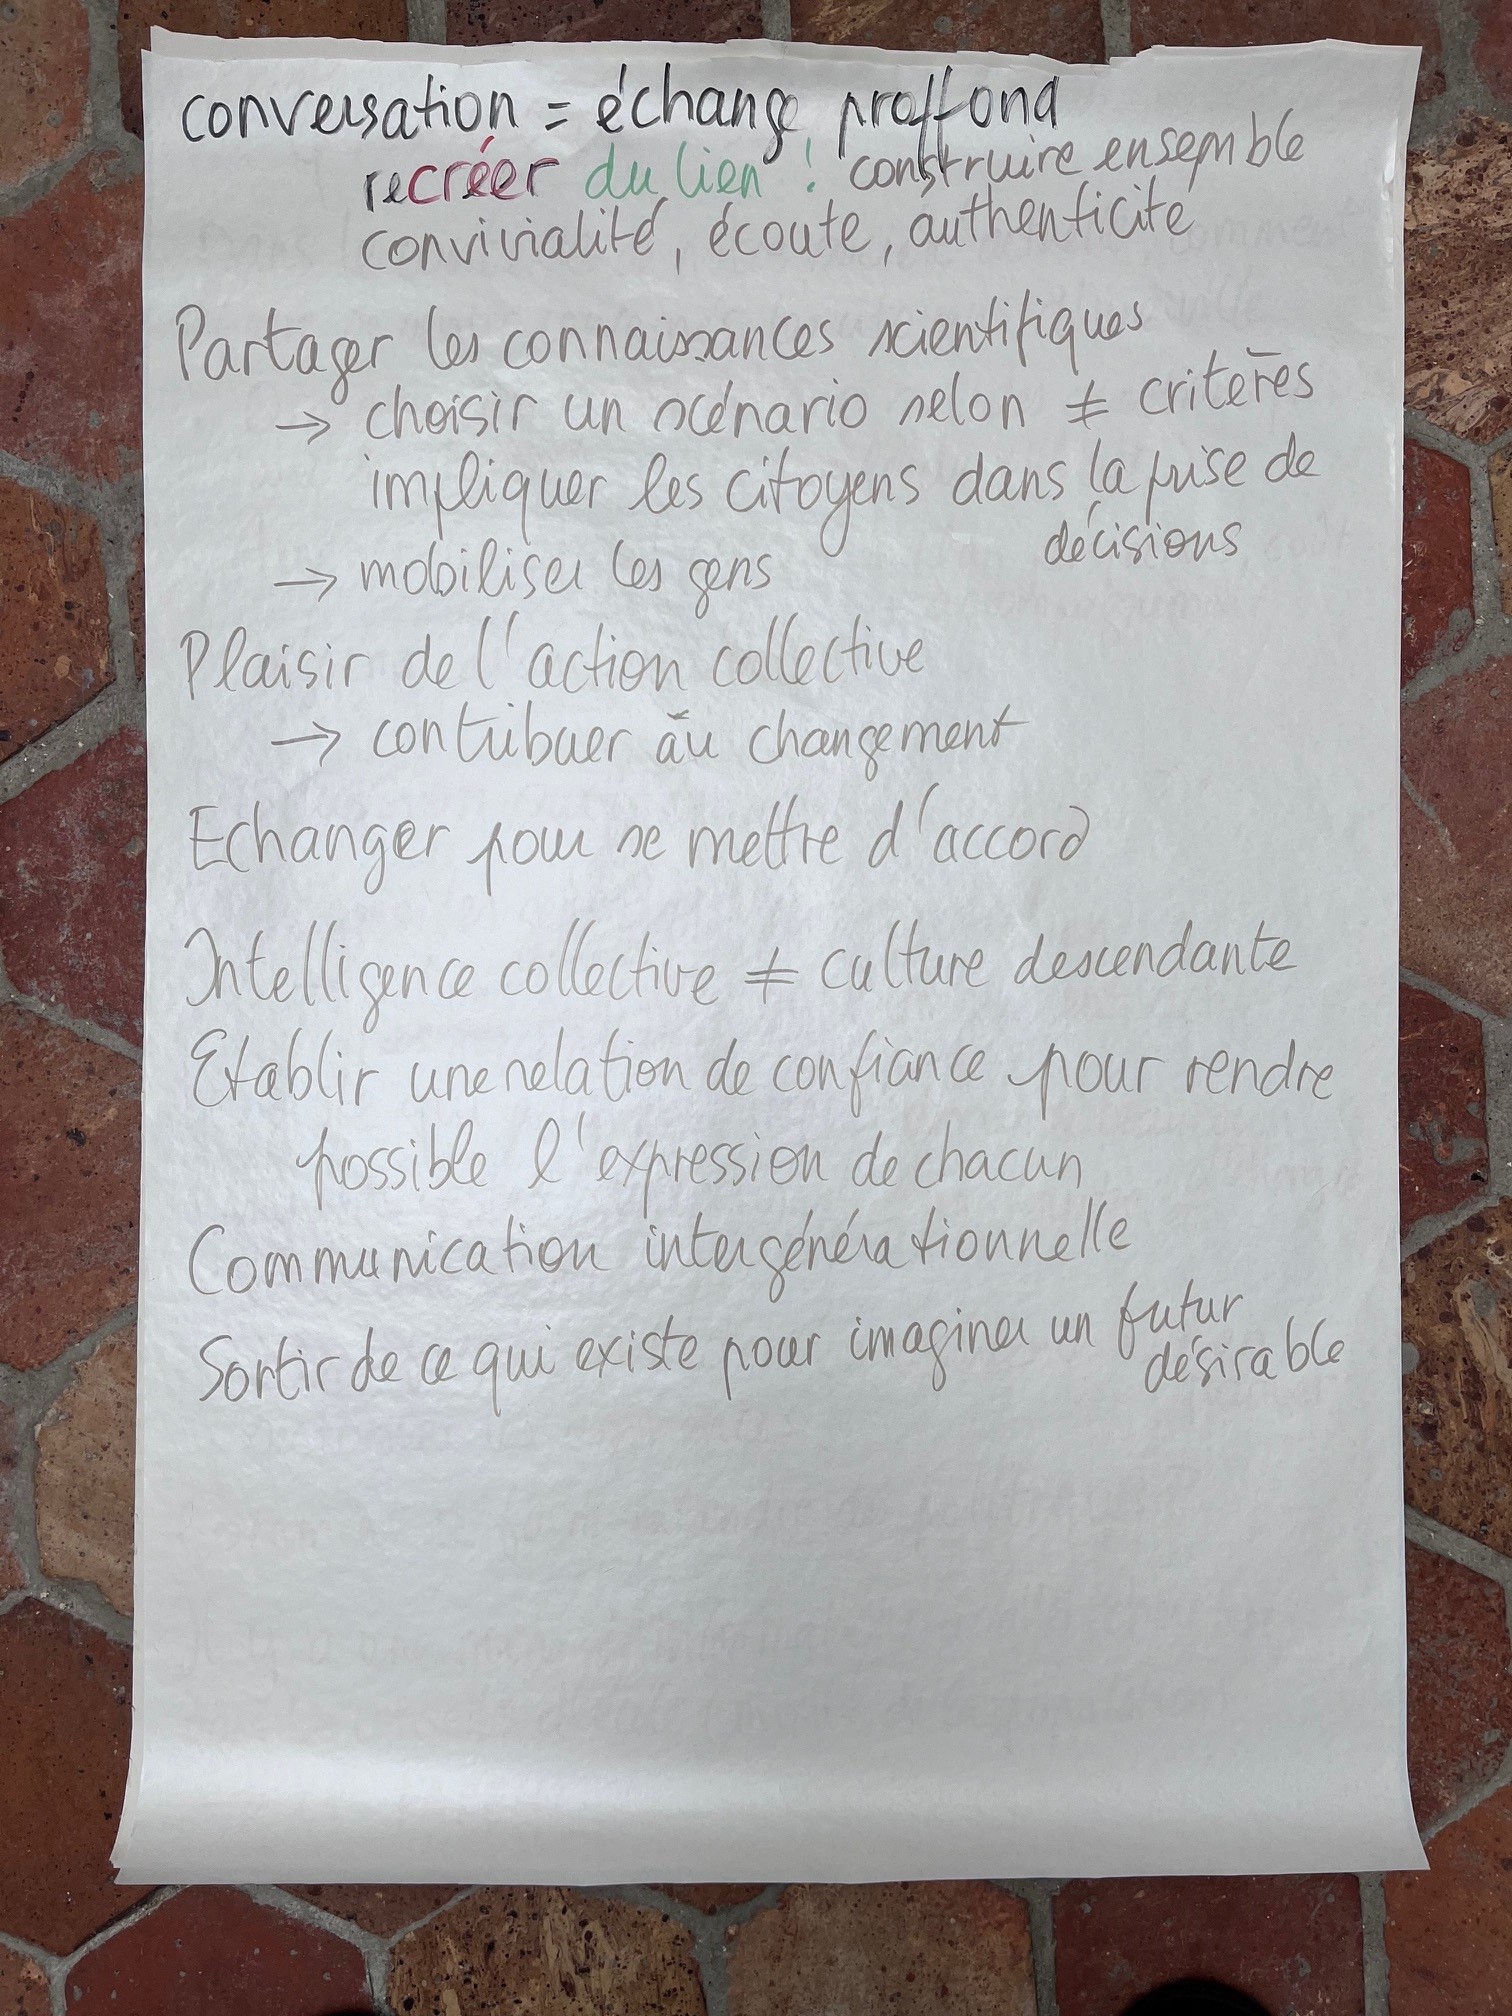 conversation = échange proffond
recréer du lien ! construire ensemble
convivialité, écoute, authenticité
Partager les connaissances scientifiques
→ choisir un scénario selon ≠ critères
impliquer les citoyens dans la prise de
décisions
→ mobiliser les gens
Plaisir de l'action collective
→ contribuer au changement
Echanger pour se mettre d'accord
Intelligence collective ≠ culture descendante
Etablir une relation de confiance pour rendre
possible l'expression de chacun
Communication intergénérationnelle
Sortir de ce qui existe pour imaginer un futur
désirable